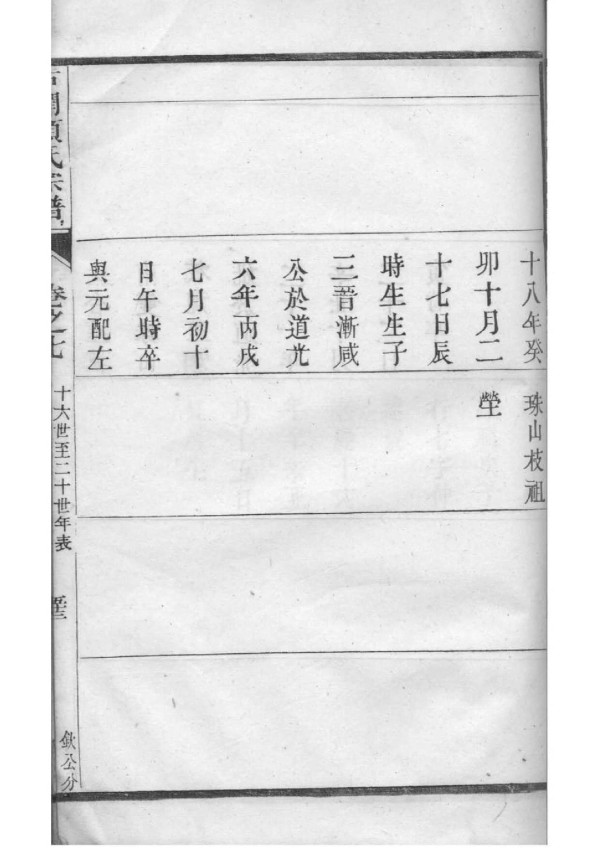 十八年癸
卯十月二
十七日辰
時生生子
三晉漸咸
公於道光
六年丙戌
七月初十
日午時卒
與元配左
珠山枝祖
塋
澗項氏宗譜
卷之七
十六世至二十世年表
欽公分